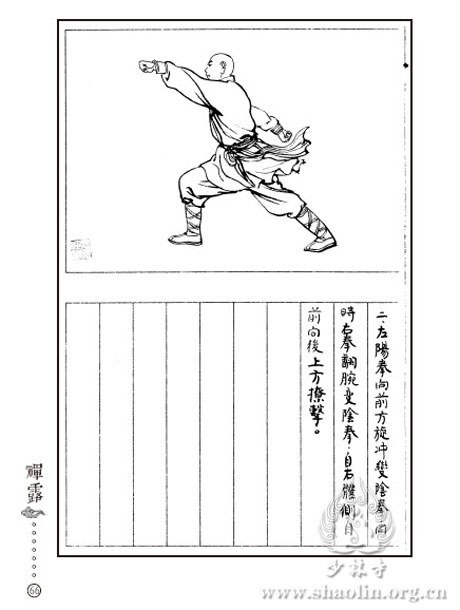 二、左陽拳向前方旋冲變陰拳.同
時右拳翻腕变陰拳.自右體側自
前向後上方撩擊。
禪露
66
少林寺
www.shaolin.org.cn